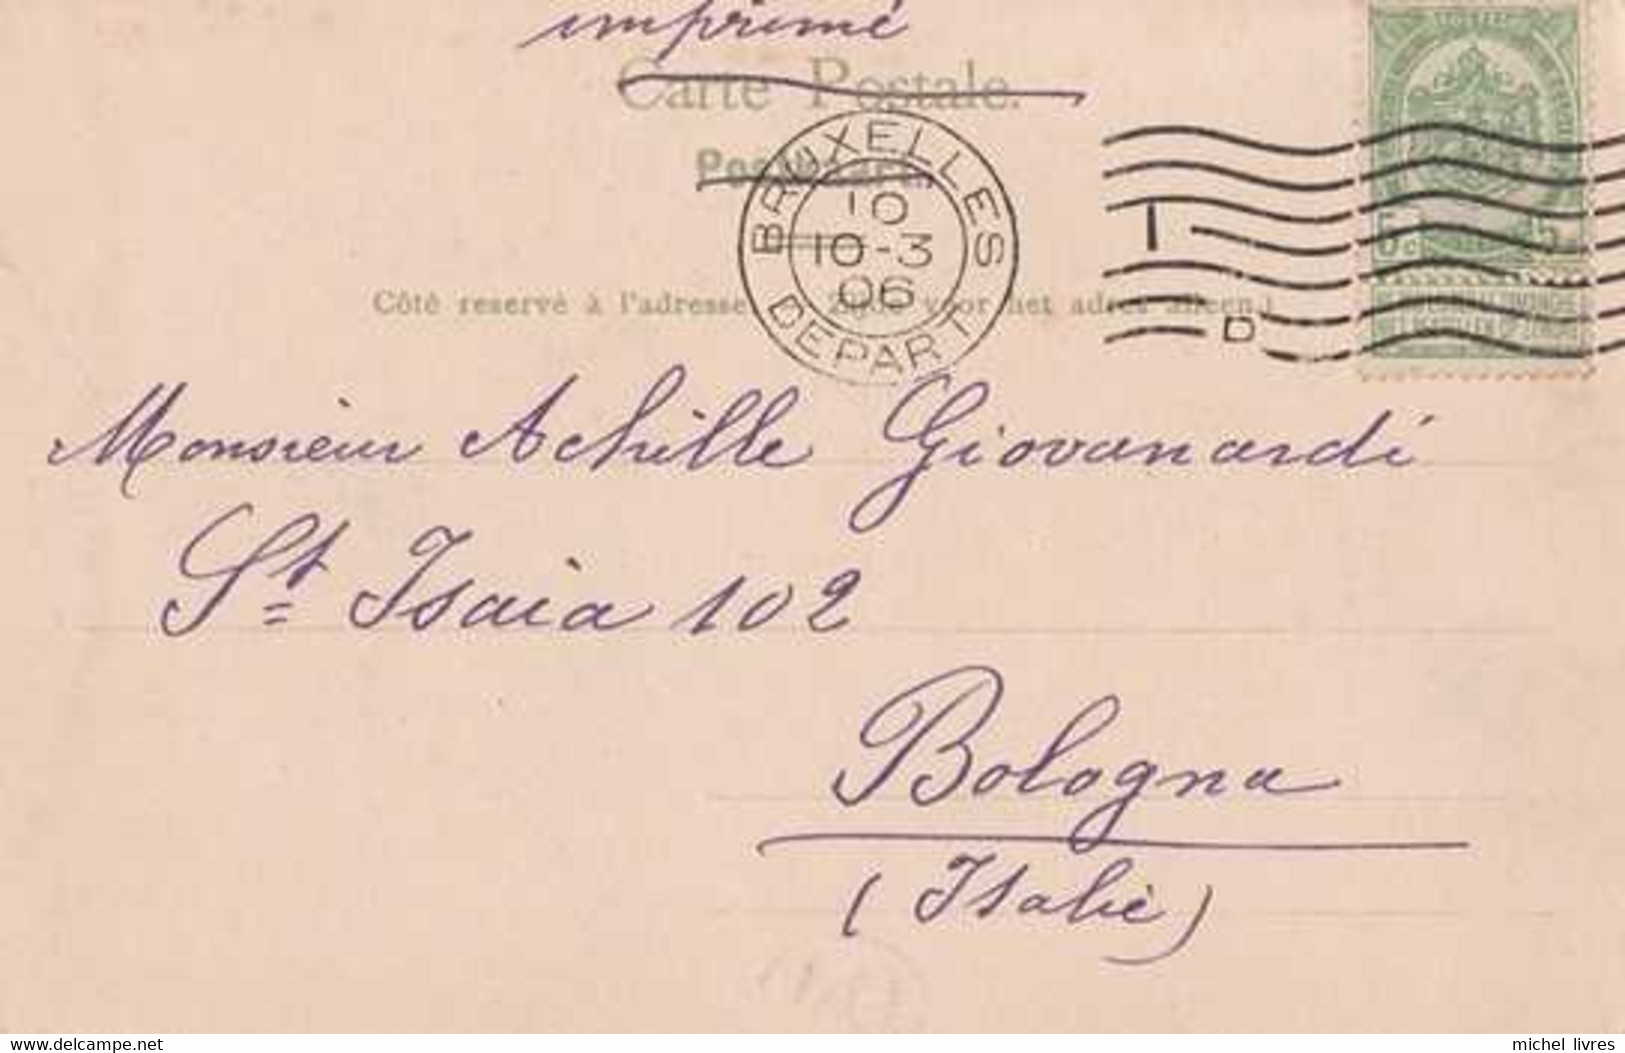 imprimé
Carte Postale.
Postkaart.
BRUXELLES
10
10-3
06
DEPART
I
D
Côté reservé à l'adresse. Zijde voor het adres alleen.
Monsieur Achille Giovanardi
St Isaia 102
Bologna
(Italie)
www.delcampe.net
michel_livres